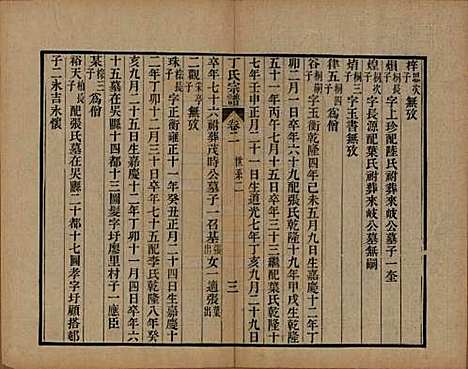 梓思次子無攷
熉桐次子字上珍配陸氏祔葬來岐公墓子一奎
煌桐三子字長源配葉氏祔葬來岐公墓無嗣
焴桐四子字玉書無攷
律五桐四子爲僧
谷桐嗣子字玉衡乾隆四年己未五月九日生嘉慶十二年丁
卯二月一日卒年六十九配張氏乾隆十九年甲戌生乾隆
五十一年丙午七月十五日卒年三十三繼配葉氏乾隆三十
七年壬申正月二十一日生道光七年丁亥九月二十九日
丁氏宗譜
卷二
世系二
三
卒年七十六祔葬茂時公墓子一召基張出女一適張葉出
二觀宋亭子無攷
珠棕長子字正衡雍正十一年癸丑正月二十四日生嘉慶十
二年丁卯十一月四日卒年七十五配李氏乾隆八年癸
亥九月二十日生嘉慶十二年丁卯十一月四日卒年六
十五墓在吳縣十四都十三圖髮字圩廖里村子一應臣
某棕三子爲僧
裕天柏長子配張氏墓在吳縣二十都十七圖孝字圩顧搭郶
子二永吉永懷